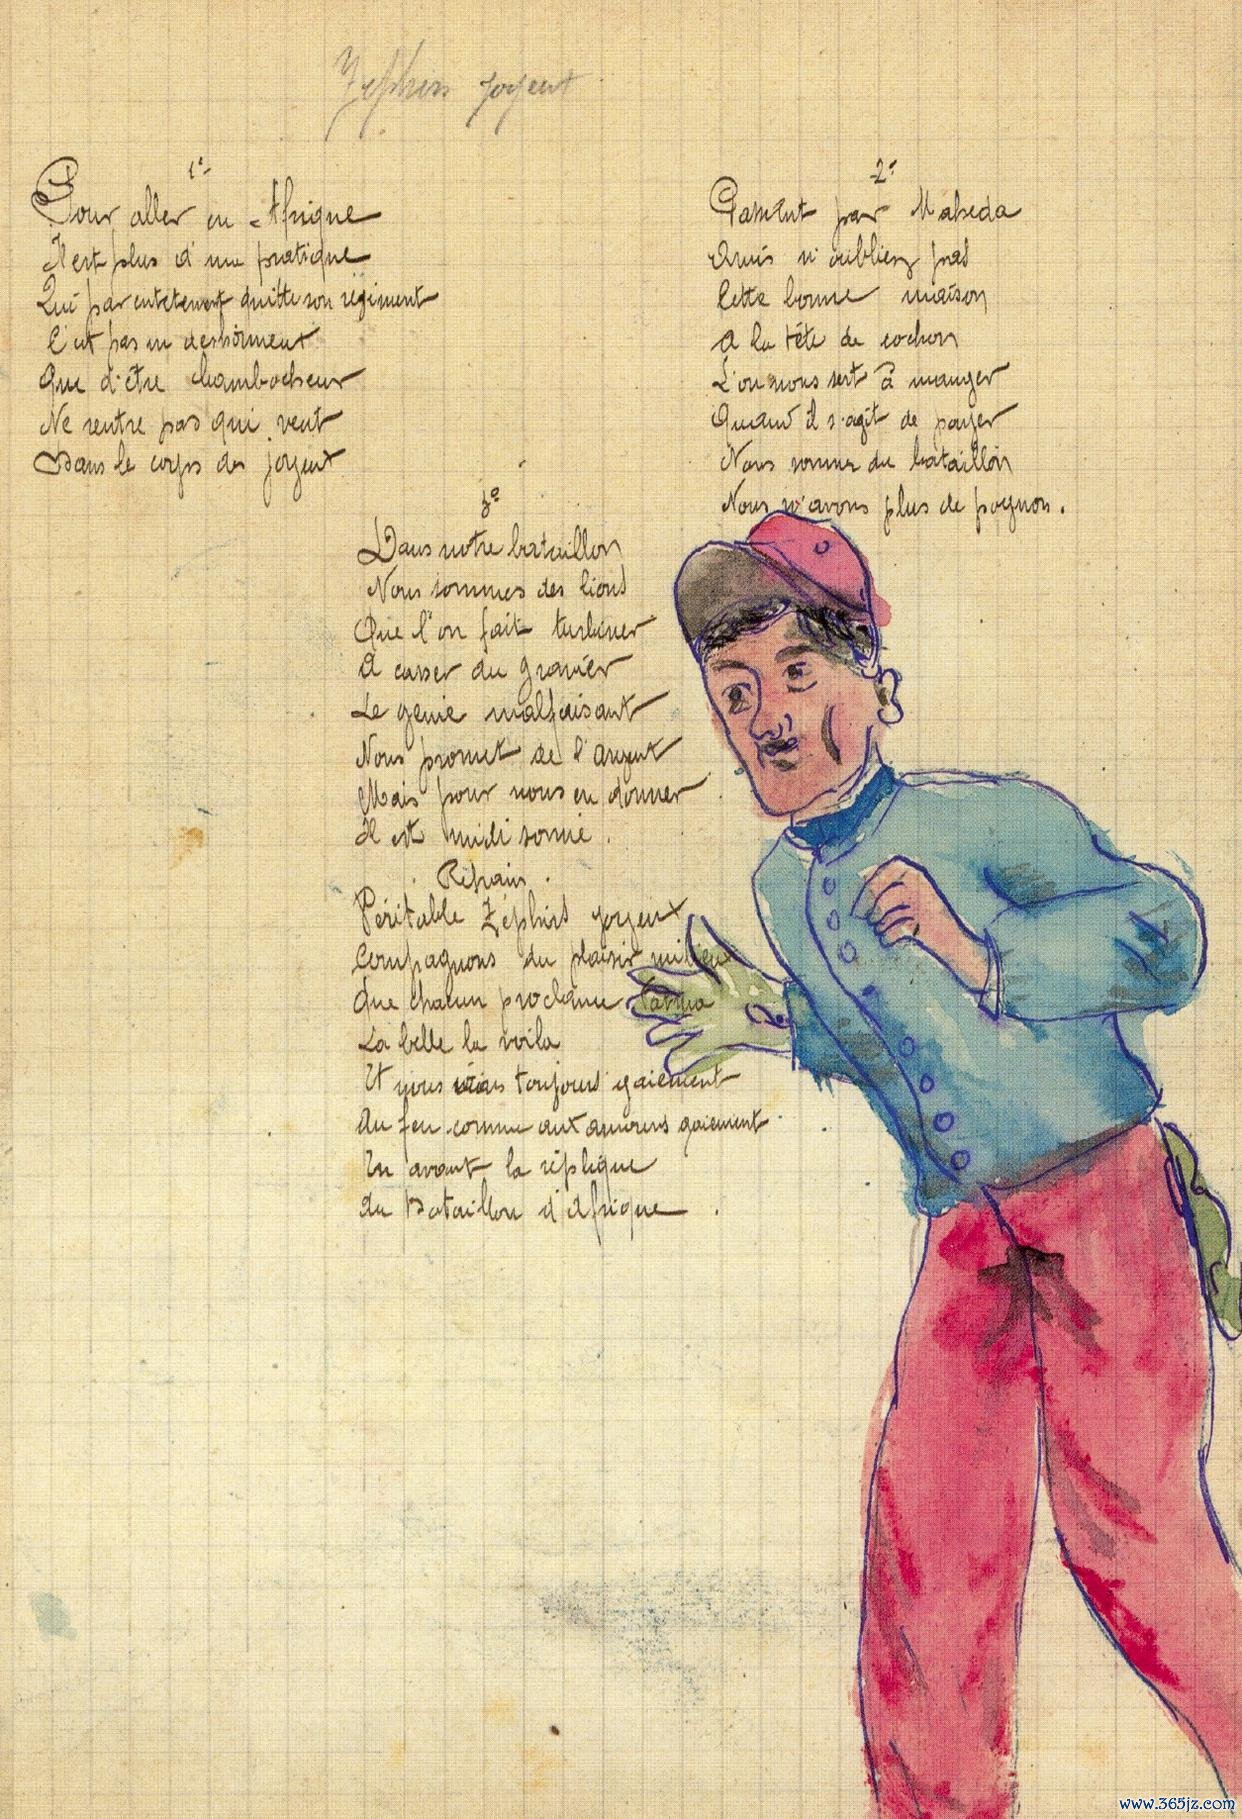 Zephirs joyeux
1º
Pour aller en Afrique
Il est plus d'une pratique
Qui par entetement quitte son régiment
C'est pas un deshonneur
Que d'être chambocheur
Ne rentre pas qui veut
Dans le corps des joyeux
2º
Passant par Maheda
Amis n'oubliez pas
Cette bonne maison
A la tête de cochon
L'on nous sert à manger
Quand il s'agit de payer
Nous sommes du bataillon
Nous n'avons plus de pognon.
3º
Dans notre bataillon
Nous sommes des lions
Que l'on fait turbiner
A casser du gravier
Le genie malfaisant
Nous promet de l'argent
Mais pour nous en donner
Il est midi sonné.
Refrain.
Véritable Zéphirs joyeux
Compagnons du plaisir
Que chacun proclame
La belle la voila
Et nous toujours gaiement
Au feu comme aux gaiement
En avant la réplique
Du Bataillon d'Afrique.
www.365jz.com